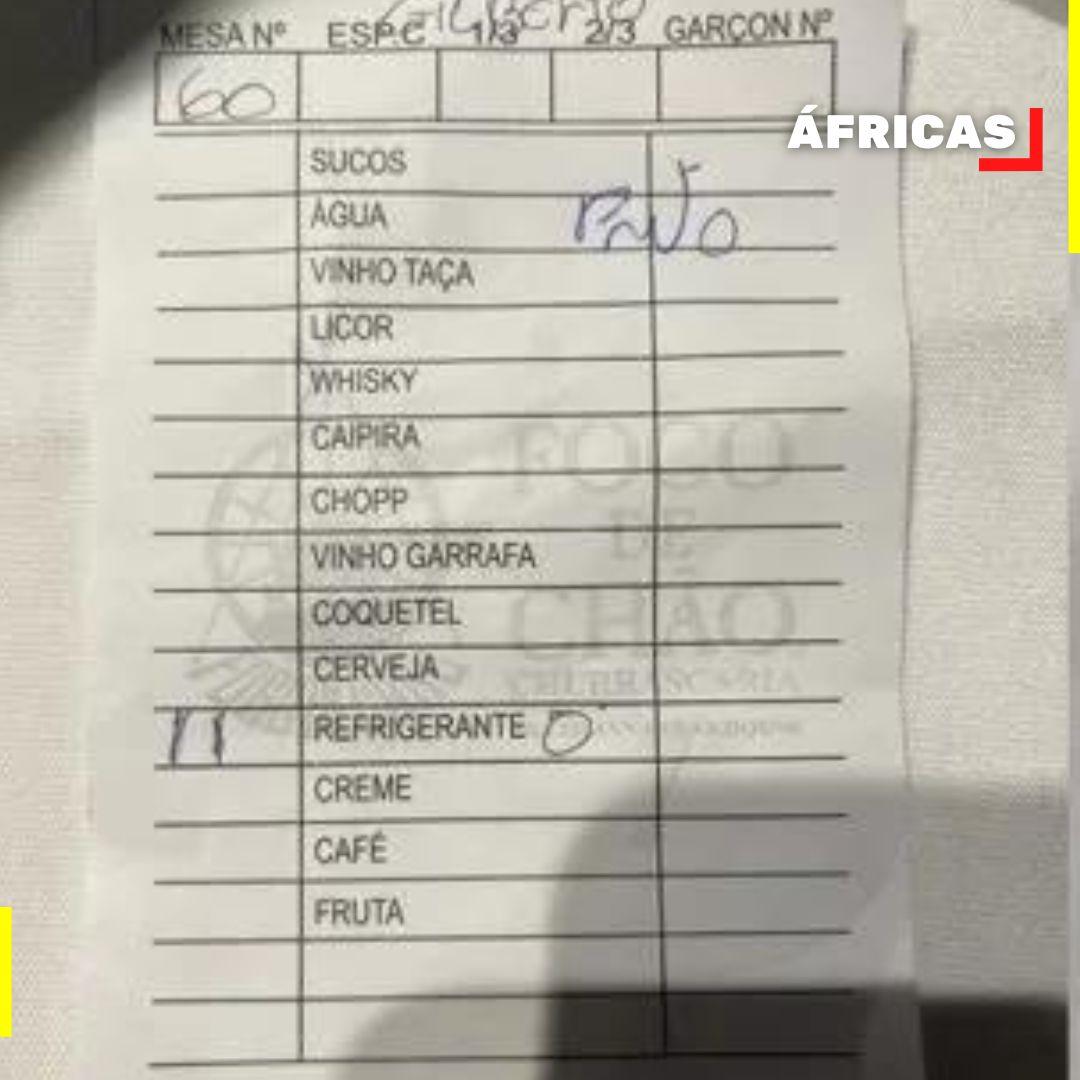 Gilberto
MESA Nº ESP.C 1/3 2/3 GARÇON Nº
60
ÁFRICAS
SUCOS
ÁGUA
VINHO TAÇA
LICOR
WHISKY
CAIPIRA
FOGO
CHOPP
DE
VINHO GARRAFA
CHÃO
COQUETEL
CERVEJA
CHURRASCARIA
11 REFRIGERANTE
CREME
CAFÉ
FRUTA